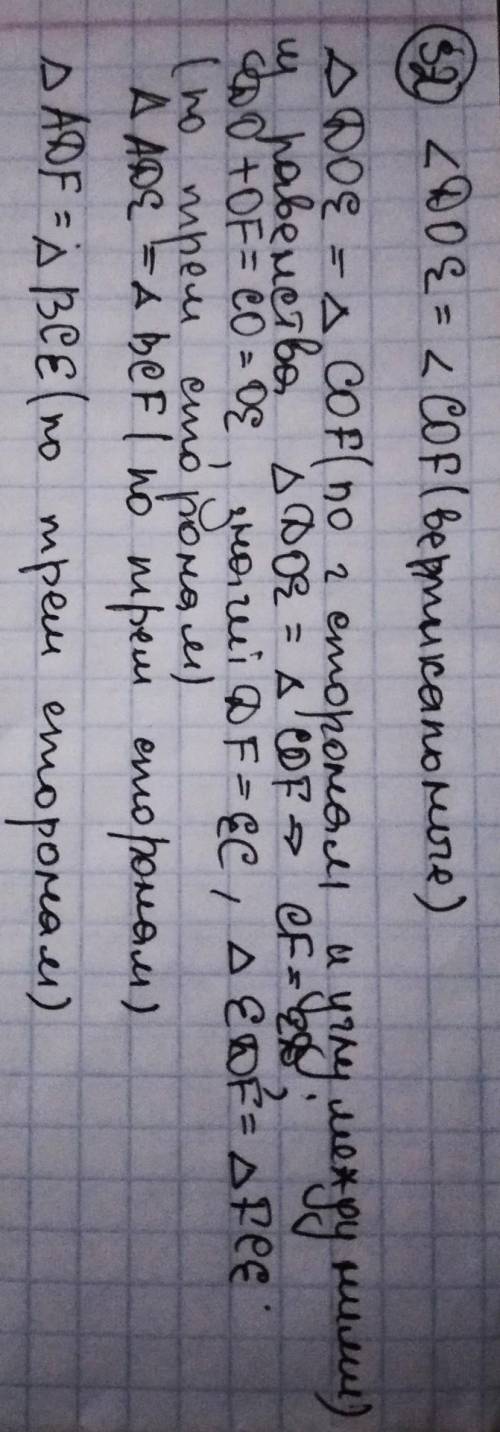 52 <DOE = <COF (вертикальные)
△ DOE = △ COF (по 2 сторонам и углу между ними)
из равенства △ DOE = △ COF => CF = ED,
DO + OF = CO = OE, значит DF = EC, △ EDF = △ FCE
(по трем сторонам)
△ ADE = △ BCF (по трем сторонам)
△ ADF = △ BCE (по трем сторонам)